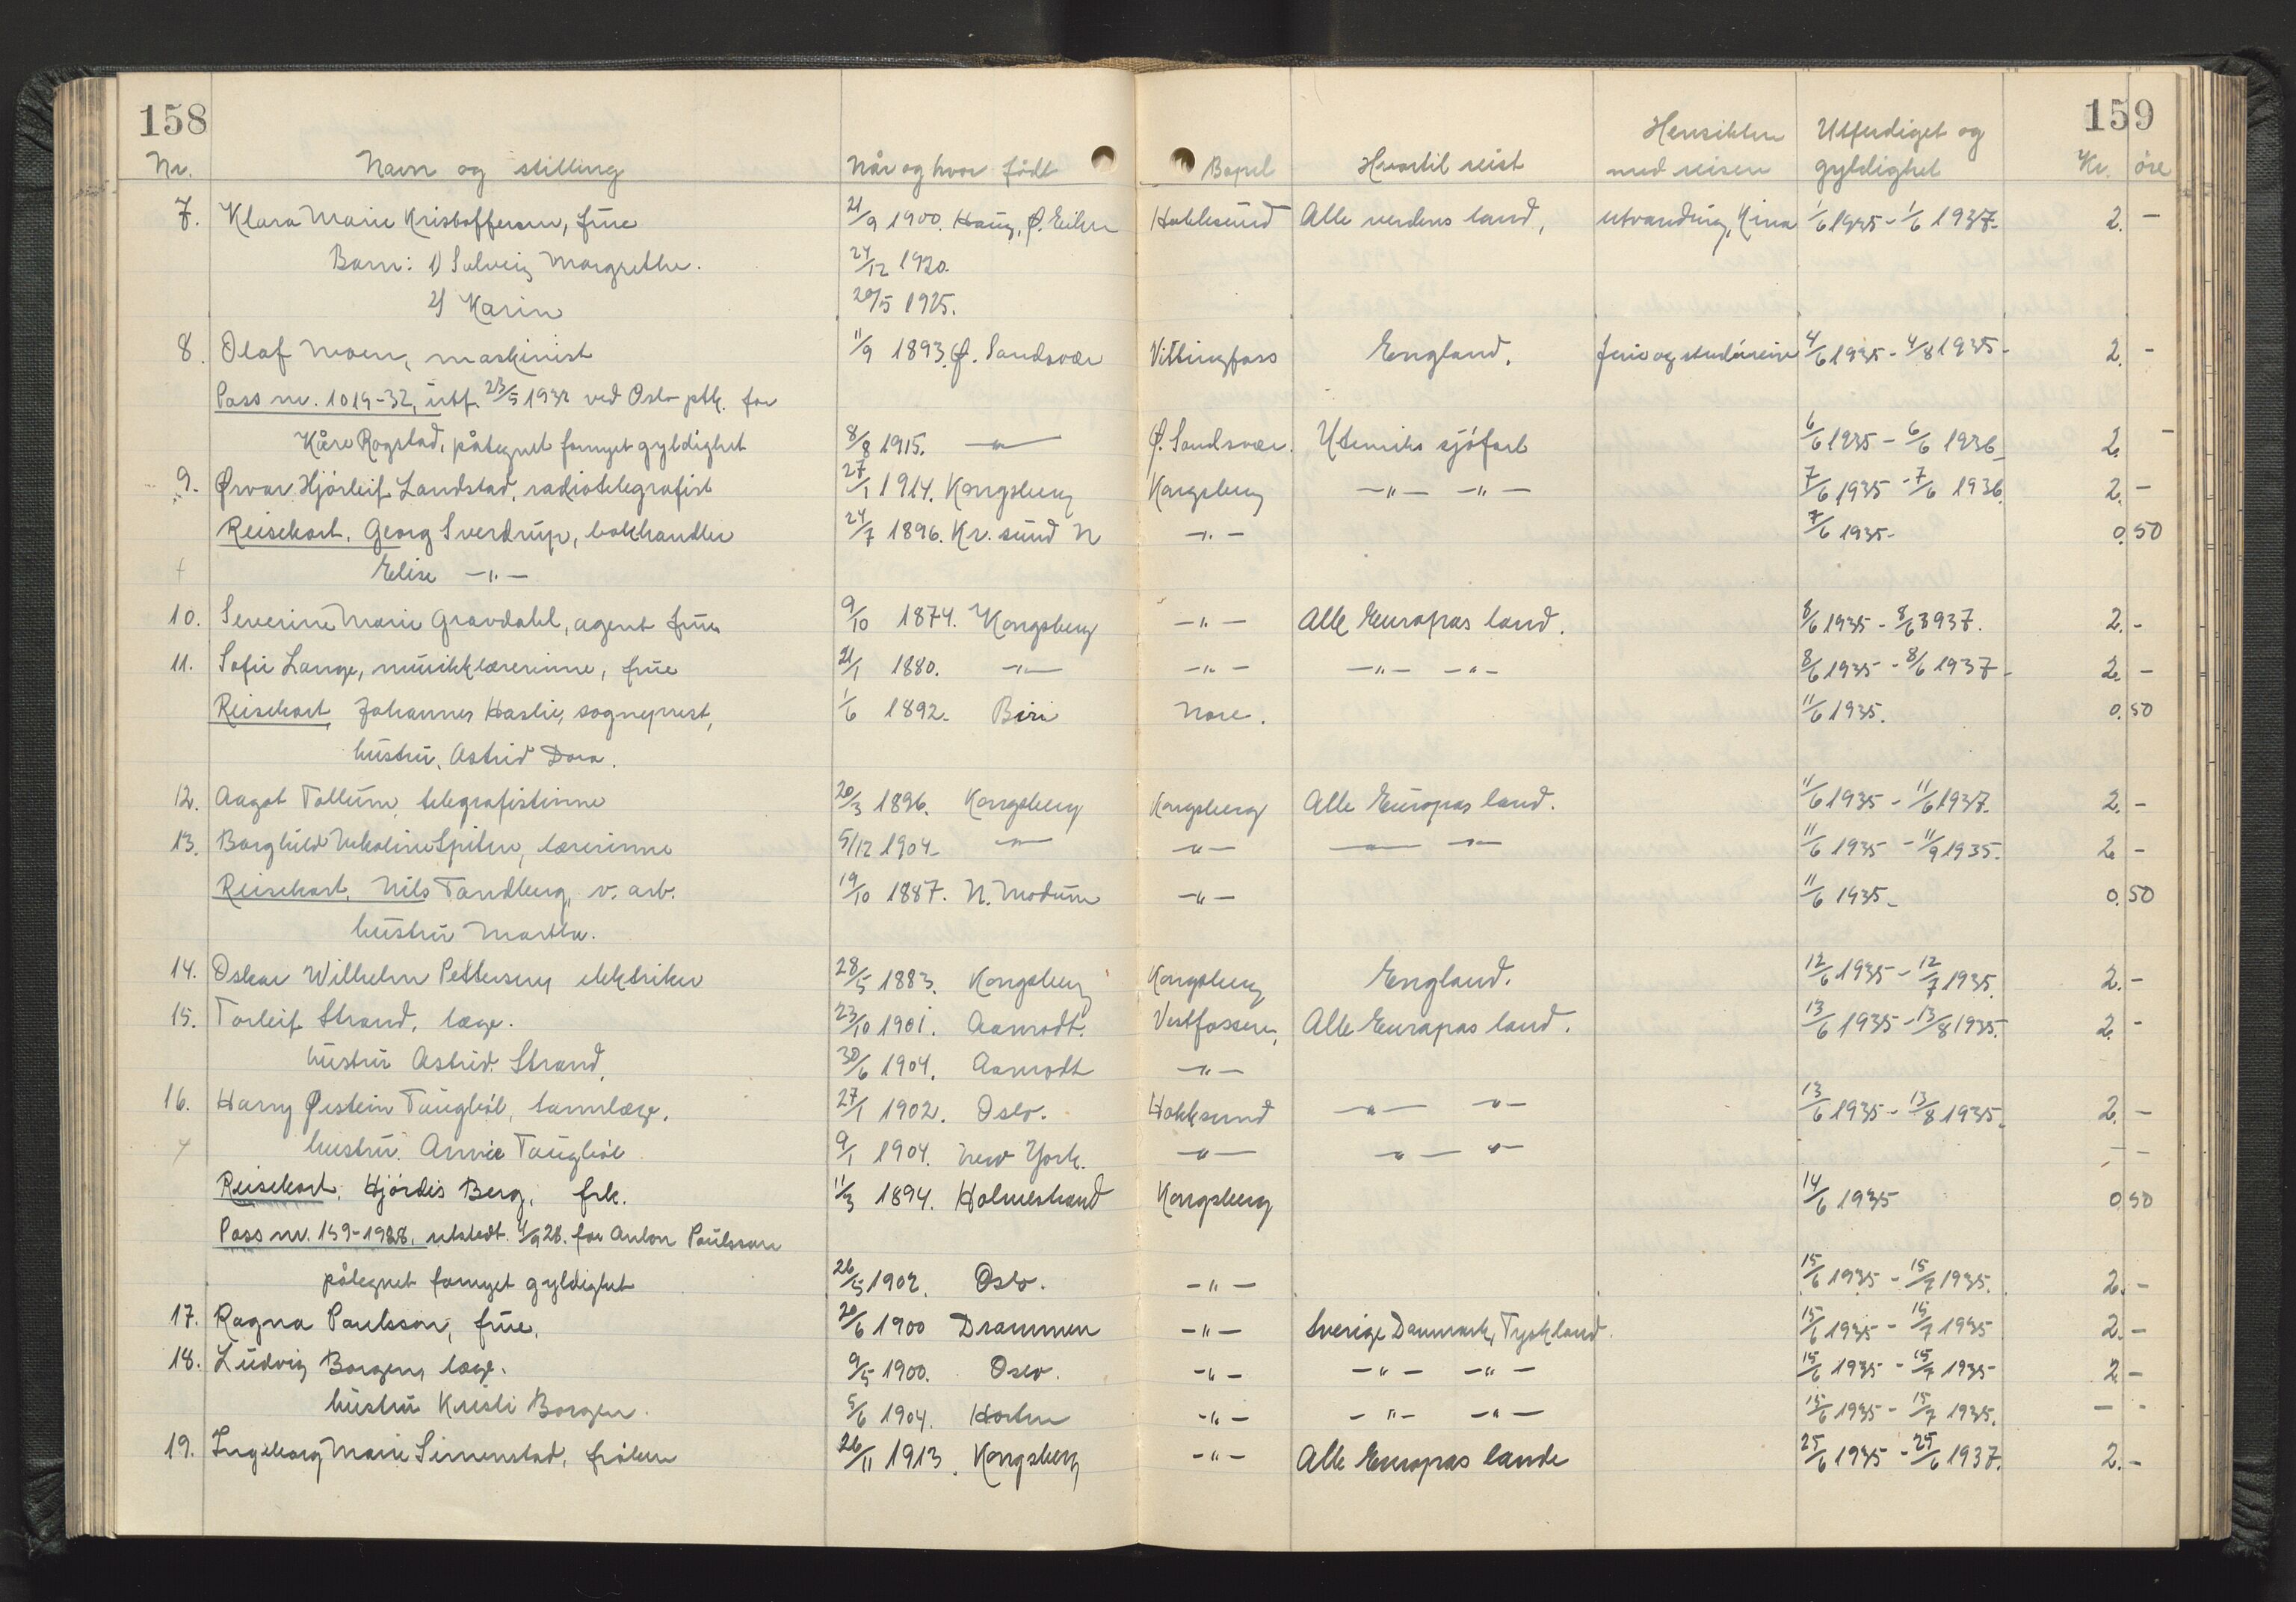 158 159
Hensikten Utferdiget og
Nr. Navn og stilling Når og hvor født Bopel Hvortil reist med reisen gyldighet Kr. øre
7. Klara Marie Kristoffersen, frue 21/9 1900. Haug, Ø. Eiker Hokksund Alle verdens land, utvandring, Kina 1/6 1935 - 1/6 1937. 2. -
Barn: 1) Solveig Margrethe. 24/12 1920.
2) Karin 20/5 1925.
8. Olaf Moen, maskinist 11/9 1893. Ø. Sandsvær Vittingfoss England. ferie og studiereise 4/6 1935 - 4/8 1935 - 2. -
Pass nr. 1019-32, utf. 23/5 1932 ved Oslo ptk. for
Kåre Rogstad, påtegnet fornyet gyldighet 8/8 1915. -"- Ø. Sandsvær. Utenriks sjøfart 6/6 1935 - 6/6 1936 2. -
9. Ørvar Hjörleif Landstad, radiotelegrafist 27/1 1914. Kongsberg Kongsberg -"- -"- 7/6 1935 - 7/6 1936. 2. -
Reisekort. Georg Sverdrup, bokhandler 24/7 1896. Kr. sund N -"- 7/6 1935 - 0.50
Elise -"-
10. Severine Marie Gravdahl, agent frue 9/10 1874. Kongsberg -"- Alle Europas land. 8/6 1935 - 8/6 3937. 2. -
11. Sofie Lange, musikklærerinne, frue 21/1 1880. -"- -"- -"- -"- 8/6 1935 - 8/6 1937 - 2. -
Reisekort, Johannes Haslie, sogneprest, 1/6 1892. Biri Nore. 11/6 1935. 0.50
hustru, Astrid Dora.
12. Aagot Tollum, telegrafistinne 20/3 1896. Kongsberg Kongsberg Alle Europas land. 11/6 1935 - 11/6 1937. 2. -
13. Borghild Spiten, lærerinne 5/12 1904 -"- -"- -"- -"- 11/6 1935 - 11/9 1935. 2. -
Reisekort, Nils Tandberg, v. arb. 19/10 1887. N. Modum -"- 11/6 1935 - 0.50
hustru Martha.
14. Oskar Wilhelm Pettersen, elektriker 28/5 1883. Kongsberg Kongsberg England. 12/6 1935 - 12/7 1935. 2. -
15. Torleif Strand, læge. 23/10 1901. Aamodt. Vestfossen, Alle Europas land. 13/6 1935 - 13/8 1935. 2. -
hustru Astrid Strand, 30/6 1904. Aamodt -"-
16. Harry Øistein Taugbøl, tannlæge. 27/1 1902. Oslo. Hokksund -"- -"- 13/6 1935 - 13/8 1935. 2. -
hustru. Annie Taugbøl 9/1 1904. New York. -"- -"- -"- - -
Reisekort. Hjördis Berg, frk. 11/3 1894. Holmestrand Kongsberg 14/6 1935 0.50
Pass nr. 159-1928. utstedt. 4/9 28. for Anton Paulsson
påtegnet fornyet gyldighet 26/5 1902. Oslo. -"- 15/6 1935 - 15/7 1935. 2. -
17. Ragna Paulsson, frue, 20/6 1900 Drammen -"- Sverige Danmark, Tyskland. 15/6 1935 - 15/7 1935 2. -
18. Ludvig Borgen, læge. 9/5 1900. Oslo. -"- -"- -"- 15/6 1935 - 15/7 1935 2 -
hustru Kristi Borgen. 5/6 1904. Horten -"- -"- -"- 15/6 1935 - 15/7 1935. - -
19. Ingeborg Marie Simenstad, frøken 26/11 1913. Kongsberg -"- Alle Europas lande 25/6 1935 - 25/6 1937. 2. -